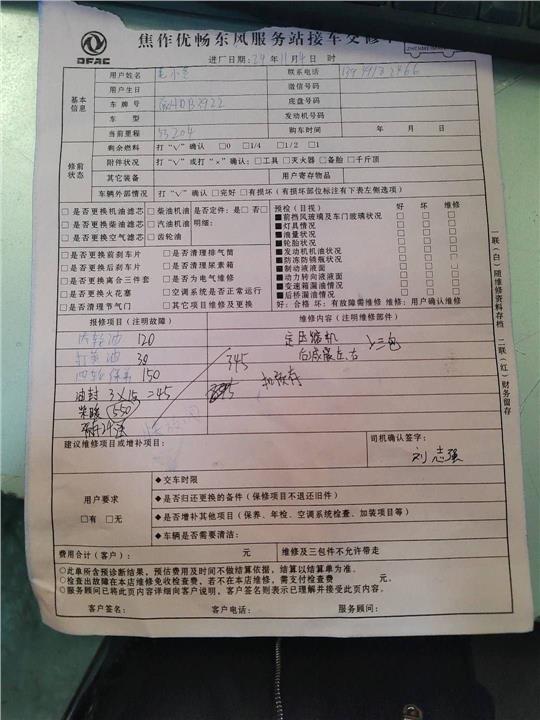 DFAC
焦作优畅东风服务站接车交修
进厂日期：24年11月4日 时
基本信息
用户姓名
联系电话
用户生日
微信号码
车牌号
底盘号码
车型
发动机号码
当前里程 53204
购车时间 年 月 日
修前状态
剩余燃料 打“√”确认 □0 □1/4 □1/2 □1
附件状况 打“√”或打“×”确认：□工具 □灭火器 □备胎 □千斤顶
其它装备
用户寄存物品
车辆外部情况 打“√”确认 □完好 □有损坏（有损坏部位标注有下表左侧选项）
□是否更换机油滤芯 □柴油机油 是否定件：□是 □否
□是否更换柴油滤芯 □汽油机油 明细：
□是否更换空气滤芯 □齿轮油
□是否更换前刹车片 □是否清理排气筒
□是否更换后刹车片 □是否清理尿素箱
□是否更换离合三件套 □是否为电气维修
□是否更换火花塞 □空调系统是否运行正常
□是否清理节气门 □其它项目维修及更换
预检（目视） 好 坏 维修
■前挡风玻璃及车门玻璃状况 □ □ □
■灯具情况 □ □ □
■油量状况 □ □ □
■轮胎状况 □ □ □
■发动机机油状况 □ □ □
■防冻防锈瓶状况 □ □ □
■制动液液面 □ □ □
■动力转向液液面 □ □ □
■变速箱漏油情况 □ □ □
■后桥漏油情况 □ □ □
好：合格 坏：有故障需维修 维修：用户确认维修
报修项目（注明故障）
维修内容（注明维修部件）
齿轮油 120
打黄油 30
四轮保养 150
油封 3×15=45
345
柴暖 550
定压缩机
后底盘左右
三包
建议维修项目或增补项目：
司机确认签字：
刘志强
用户要求
□有 □无
◆交车时限
◆是否归还更换的备件（保修项目不退还旧件）
◆是否增补其他项目（保养、年检、空调系统检查、加装项目等）
◆车辆是否需要清洁：
费用合计（客户）： 元
维修及三包件不允许带走
○此单所含预诊断结果，预估费用及时间不做结算依据，结算以结算单为准。
○检查出故障在本店维修免收检查费，若不在本店维修，需支付检查费 元。
○服务顾问已将此页内容详细向客户说明，客户签名则表示已理解并接受此页内容。
客户签名： 客户电话： 服务顾问：
一联（白）随维修资料存档 二联（红）财务留存